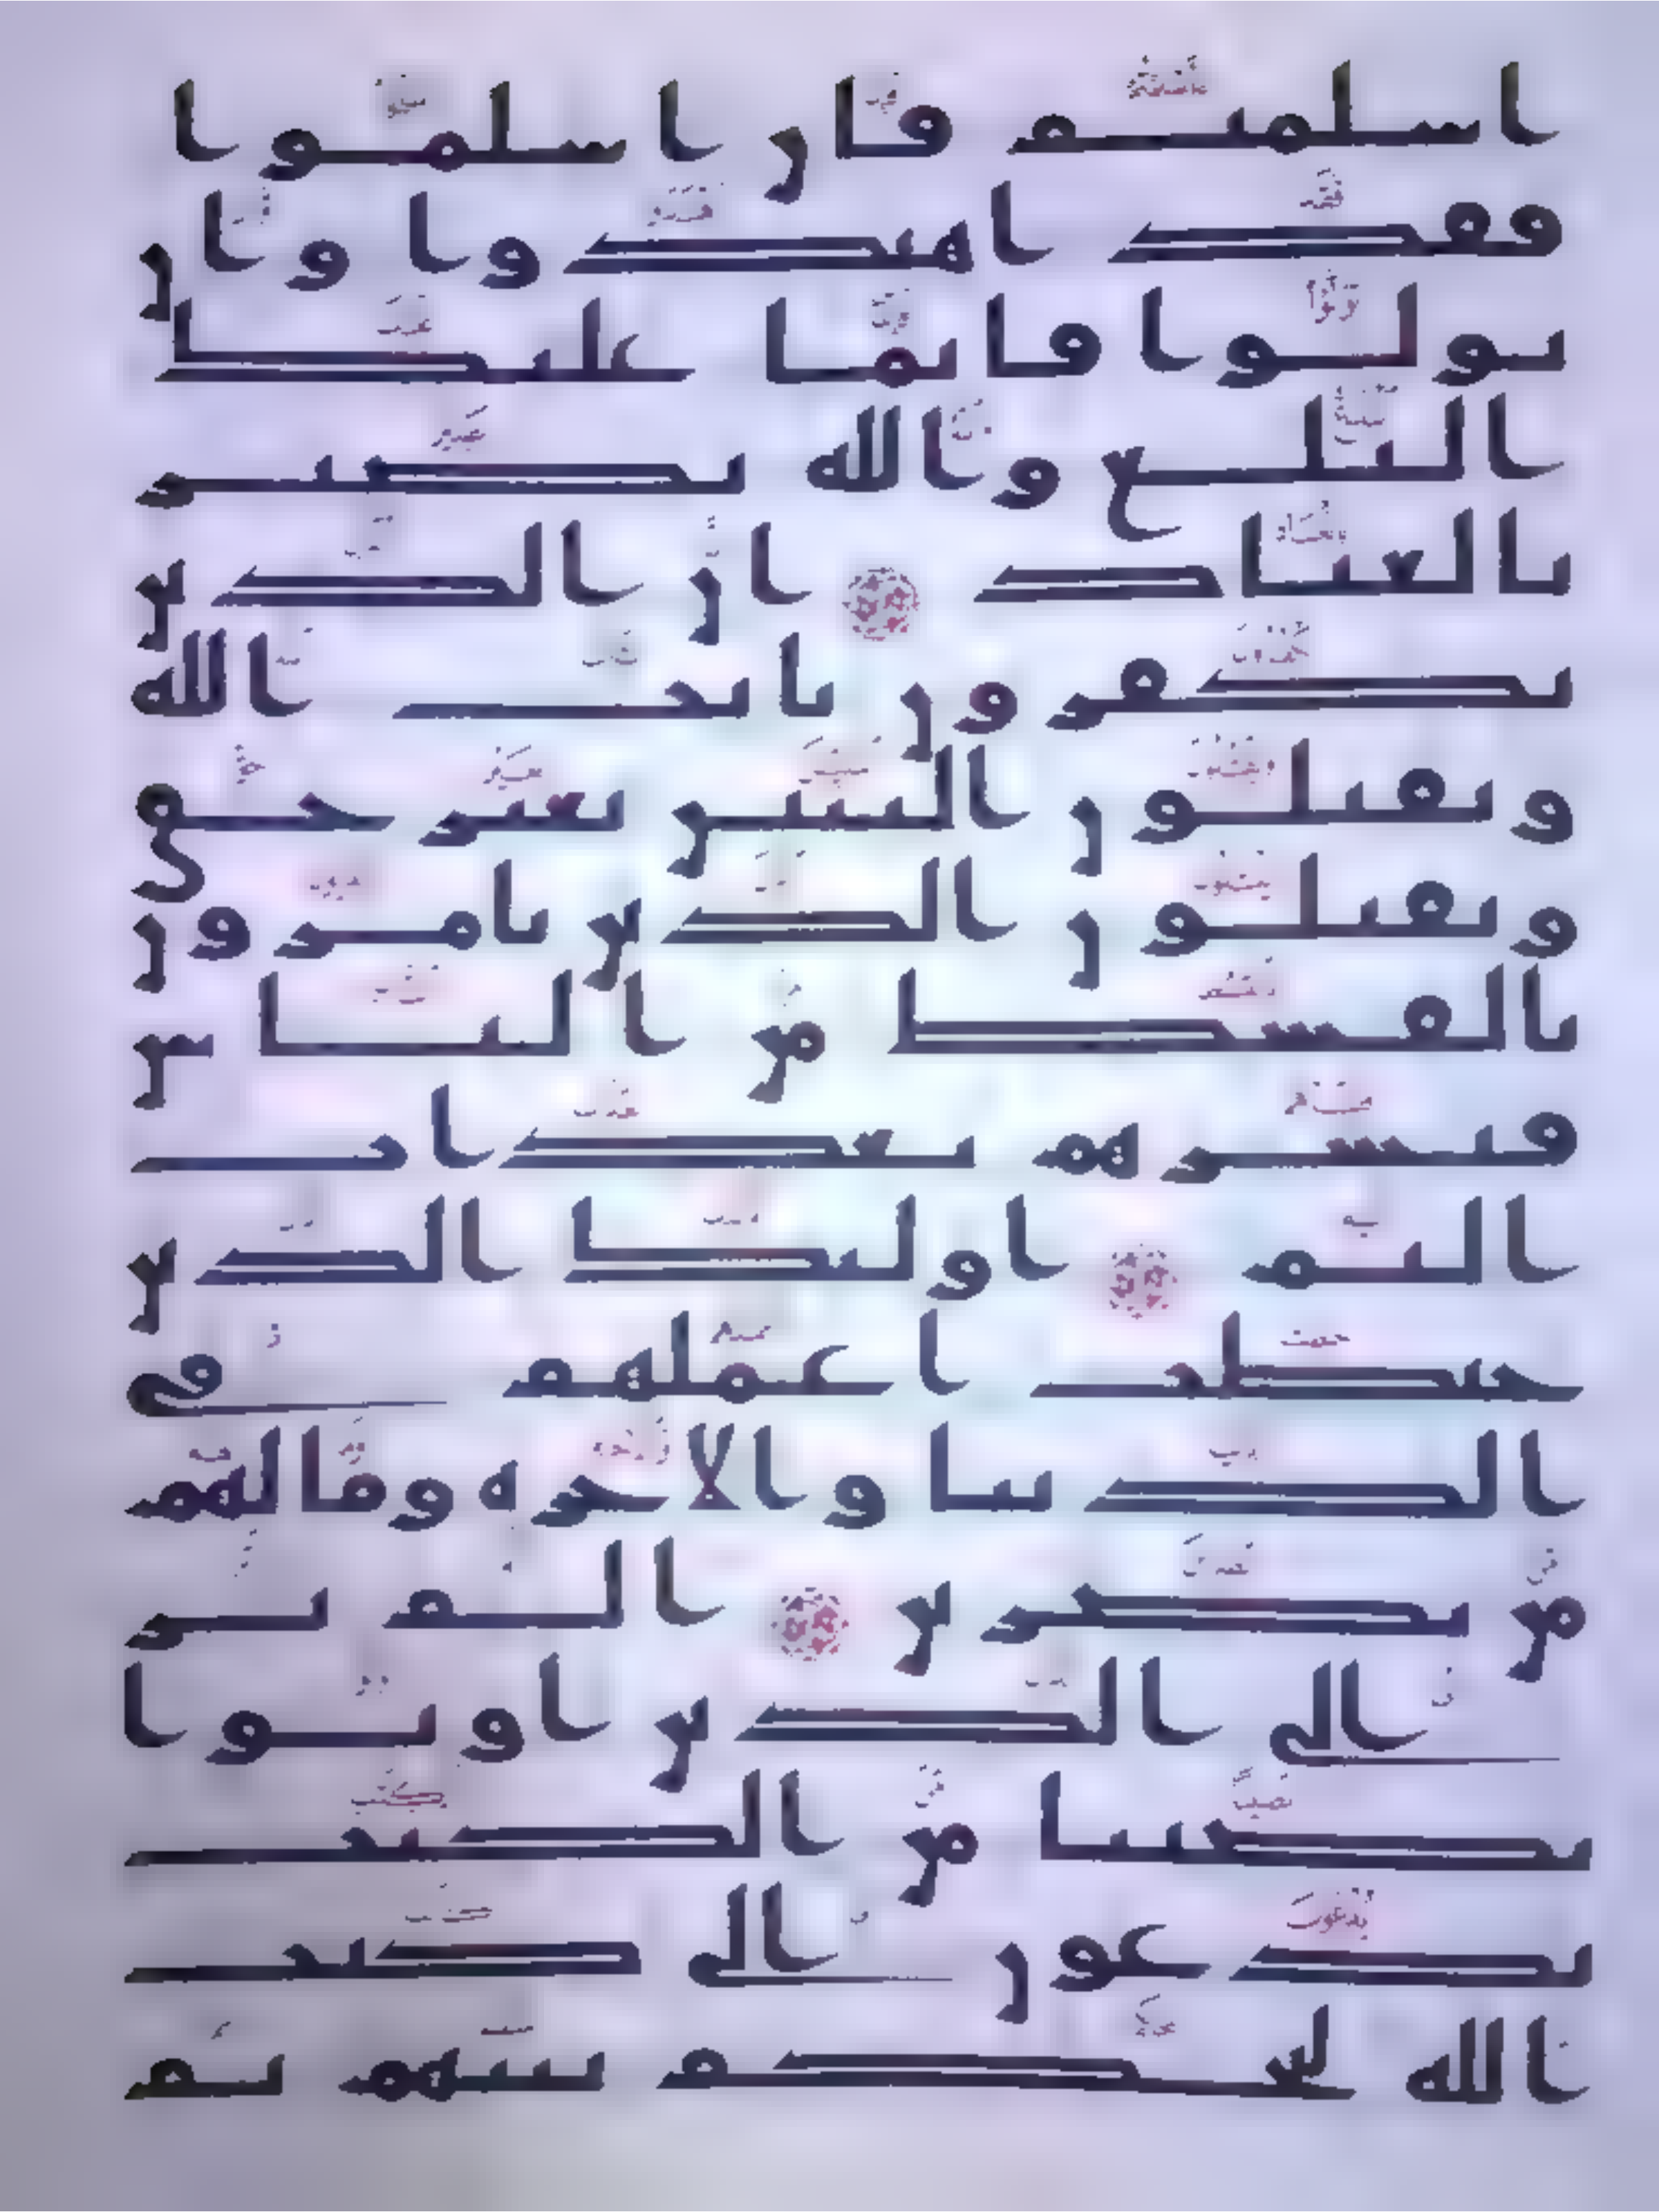 اسلمتم فان اسلموا
فقد اهتدوا وان
تولوا فانما عليك
البلغ والله بصير
بالعباد ان الذين
يكفرون بايت الله
ويقتلون النبين بغير حق
ويقتلون الذين يامرون
بالقسط من الناس
فبشرهم بعذاب
اليم اولئك الذين
حبطت اعملهم في
الدنيا والاخره وما لهم
من نصرين الم تر
الى الذين اوتوا
نصيبا من الكتب
يدعون الى كتب
الله ليحكم بينهم ثم